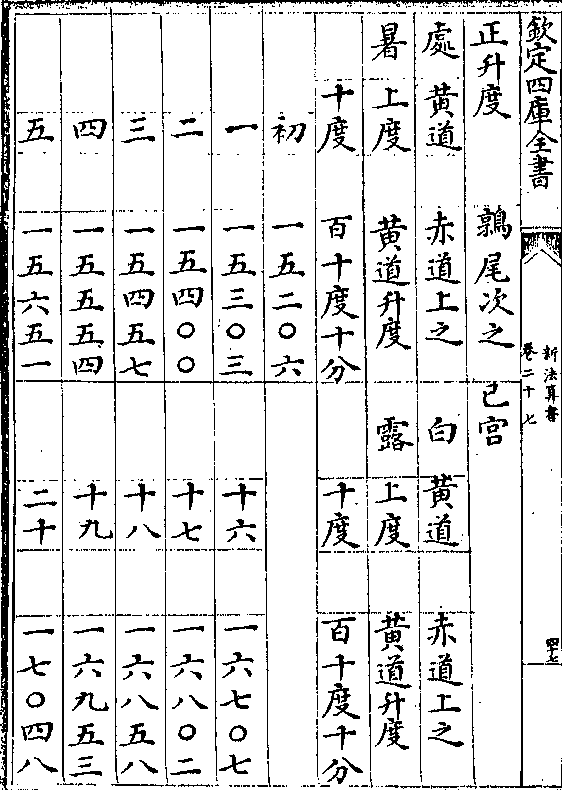 欽定四庫全書
新法算書
卷二十七
正升度 鶉尾次之 巳宮
處 黃道 赤道上之 白 黃道 赤道上之
暑 上度 黃道升度 露 上度 黃道升度
十度 百十度十分 十度 百十度十分
初 一五二〇六
一 一五三〇三 十六 一六七〇七
二 一五四〇〇 十七 一六八〇二
三 一五四五七 十八 一六八五八
四 一五五五四 十九 一六九五三
五 一五六五一 二十 一七〇四八